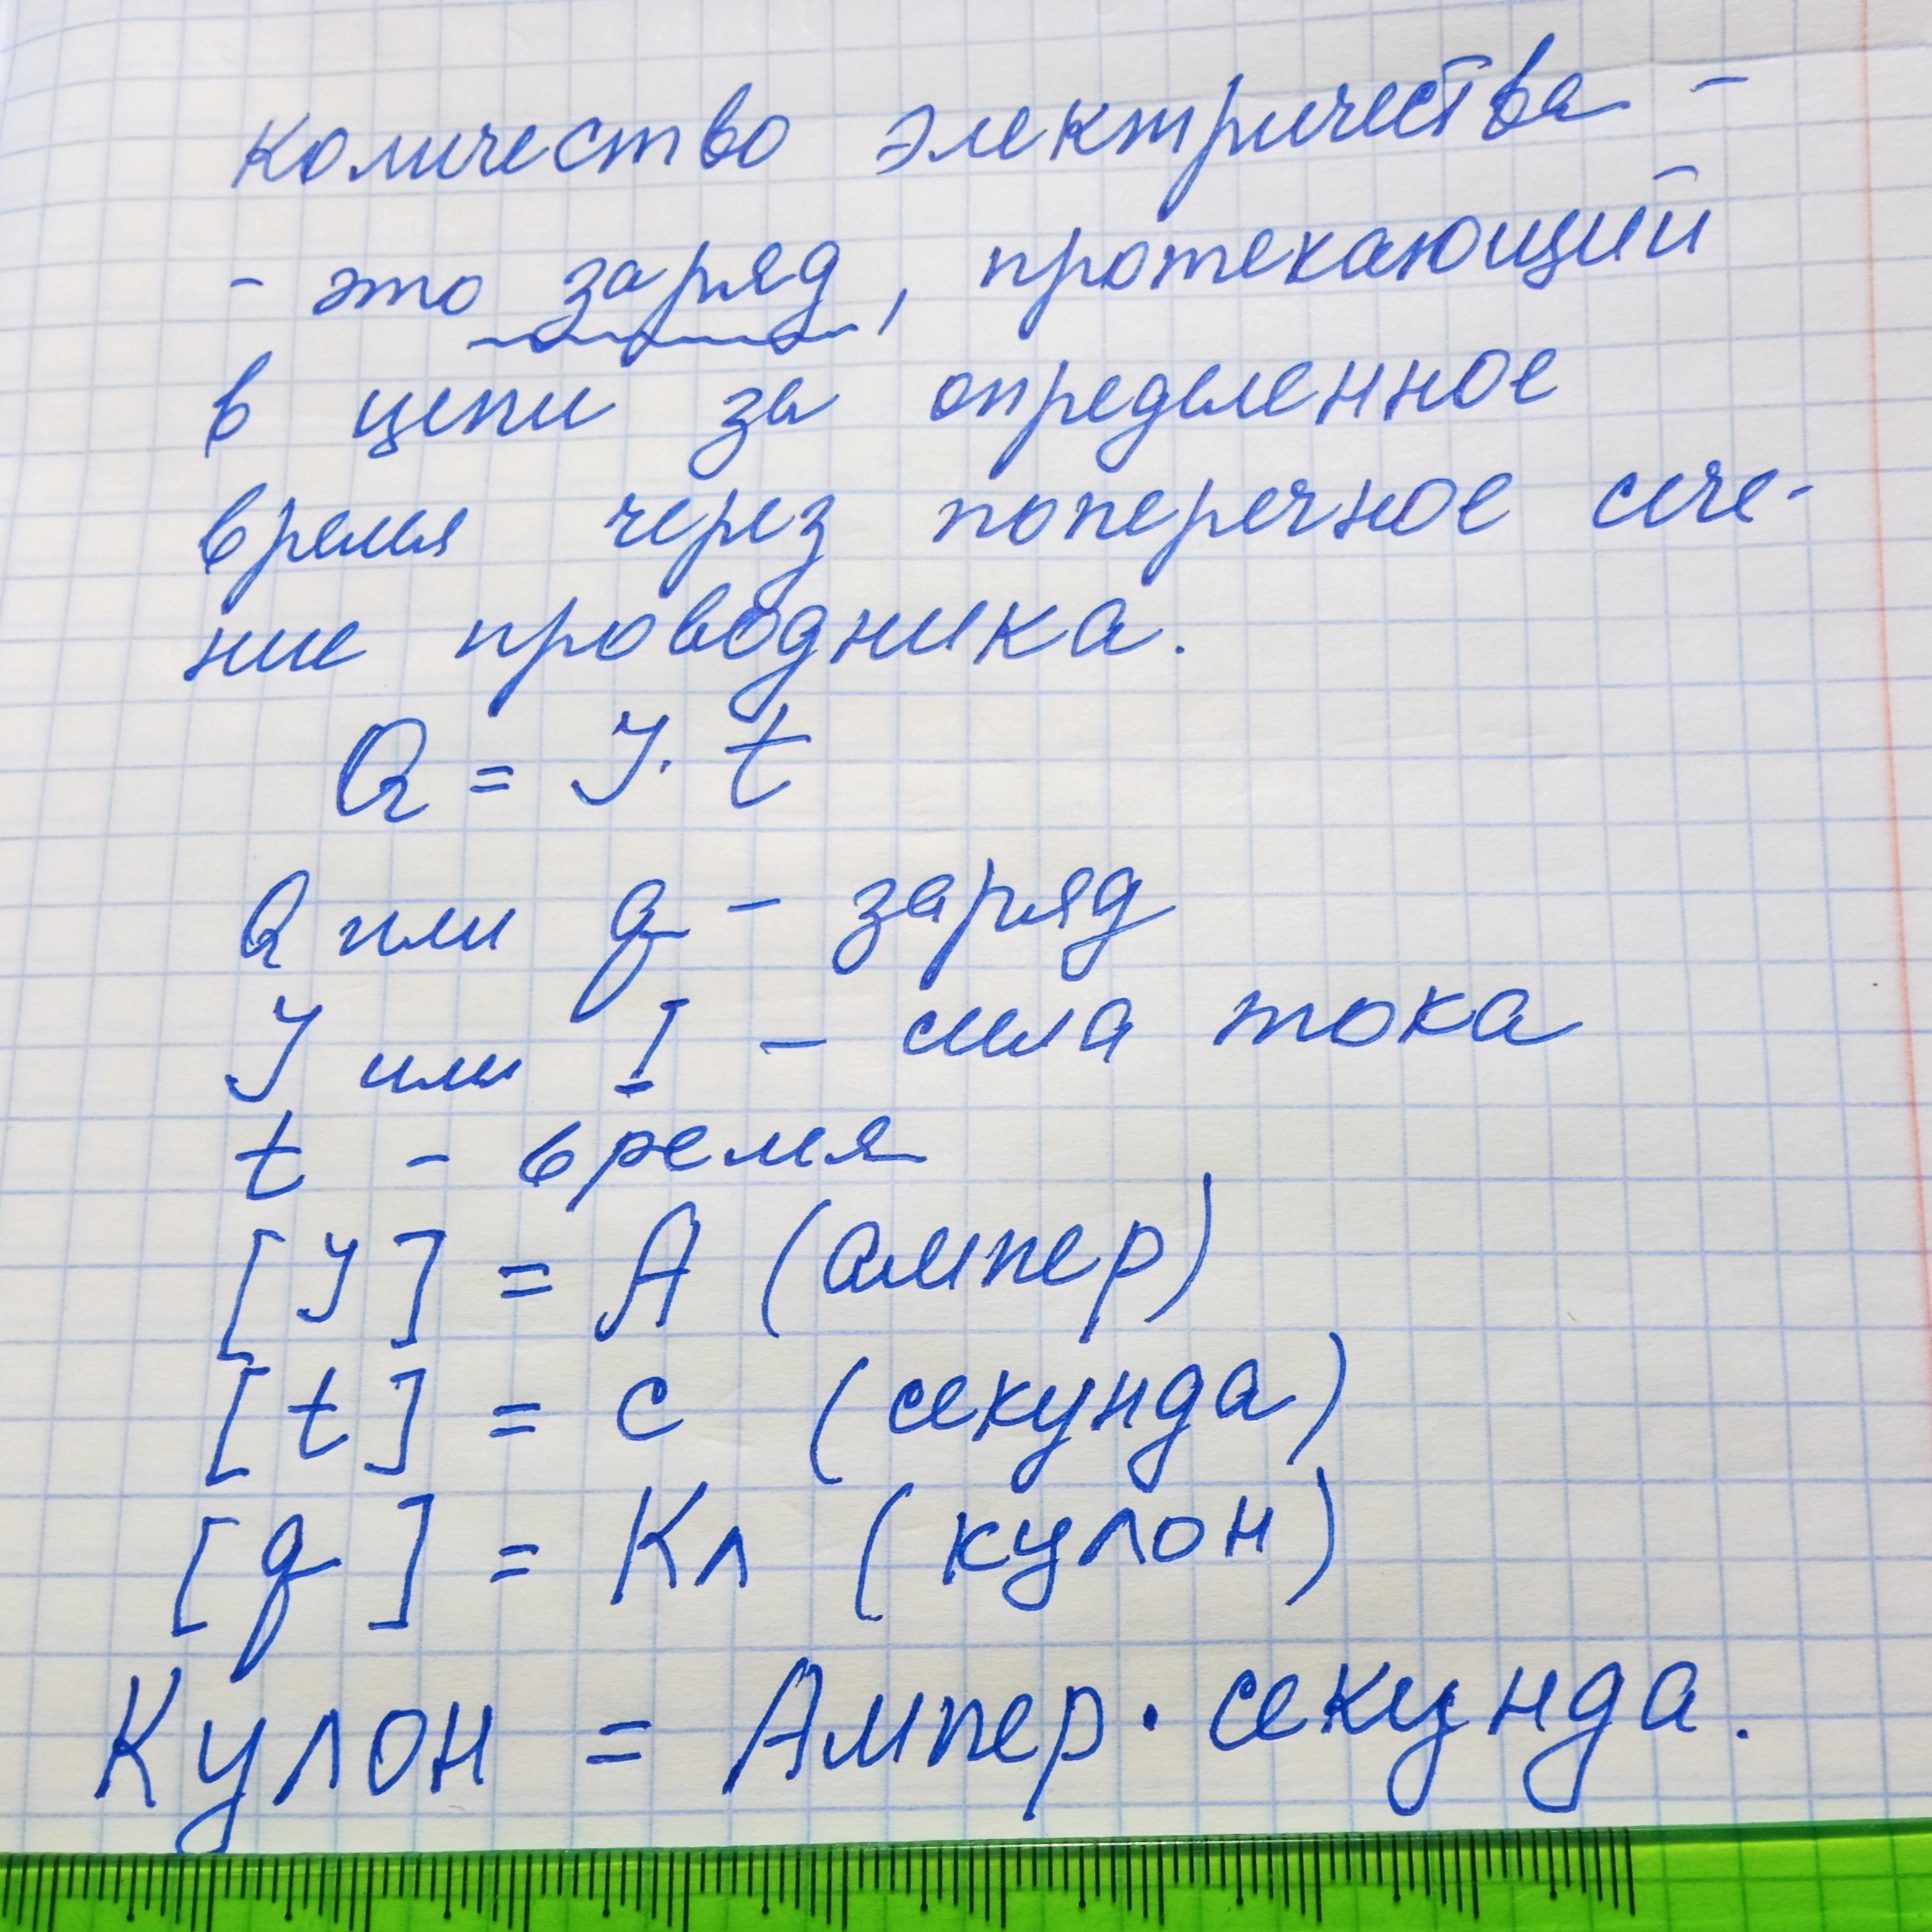 Количество электричества -
- это заряд, протекающий
в цепи за определенное
время через поперечное сече-
ние проводника.
Q = J · t
Q или q - заряд
J или I - сила тока
t - время
[J] = А (ампер)
[t] = с (секунда)
[q] = Кл (кулон)
Кулон = Ампер · секунда.